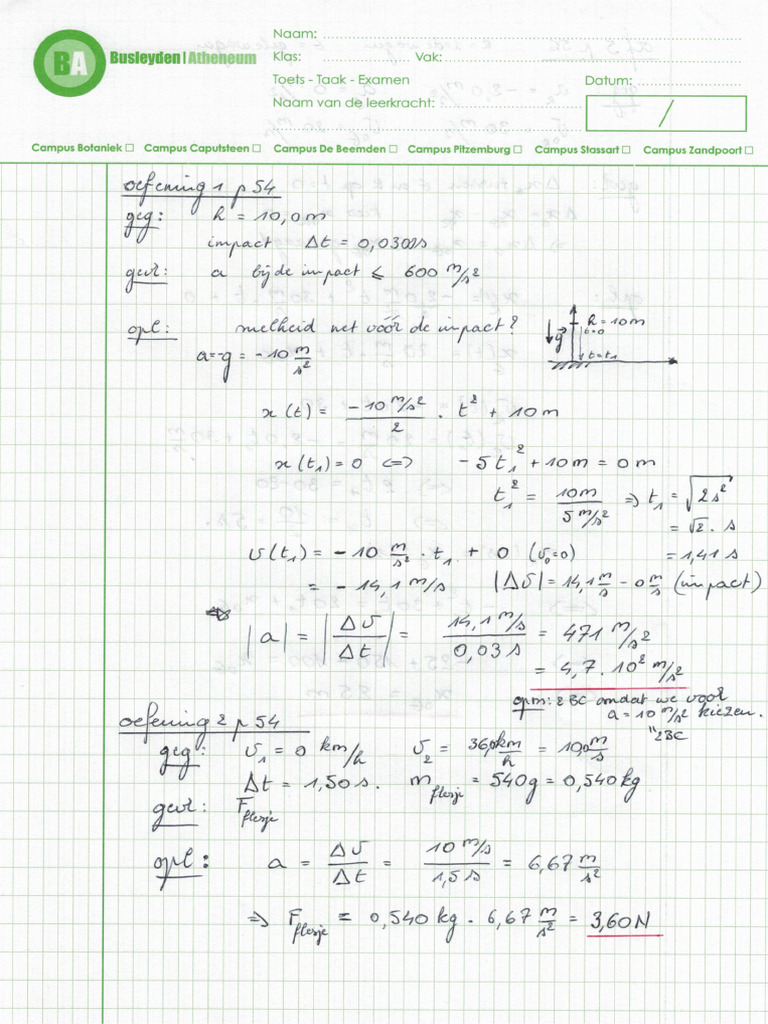 BA Busleyden | Atheneum
Naam:
Klas: Vak:
Toets - Taak - Examen Datum:
Naam van de leerkracht: /
Campus Botaniek □ Campus Caputsteen □ Campus De Beemden □ Campus Pitzemburg □ Campus Stassart □ Campus Zandpoort □
oefening 1 p 54
geg: h = 10,0 m
impact Δt = 0,0300 s
gevr: a bij de impact ≤ 600 m/s²
opl: snelheid net vóór de impact?
h = 10m
t=0
g
t=t₁
a = -g = -10 m/s²
x(t) = -10 m/s² / 2 . t² + 10 m
x(t₁) = 0 <=> -5t₁² + 10 m = 0 m
t₁² = 10 m / 5 m/s² => t₁ = √2 s²
= √2 . s
v(t₁) = -10 m/s² . t₁ + 0 (v₀=0) = 1,41 s
= -14,1 m/s |Δv| = 14,1 m/s - 0 m/s (impact)
|a| = |Δv/Δt| = 14,1 m/s / 0,03 s = 471 m/s²
= 4,7 . 10² m/s²
opm: 2 BC omdat we voor
a = 10 m/s² kiezen.
"2BC
oefening 2 p 54
geg: v₁ = 0 km/h v₂ = 36,0 km/h = 10,0 m/s
Δt = 1,50 s. m flesje = 540 g = 0,540 kg
gevr: F flesje
opl: a = Δv/Δt = 10 m/s / 1,5 s = 6,67 m/s²
=> F flesje = 0,540 kg . 6,67 m/s² = 3,60 N